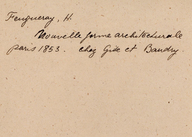 Feugueray, H.
Nouvelle forme architecturale
Paris 1853. chez Gide et Baudry.